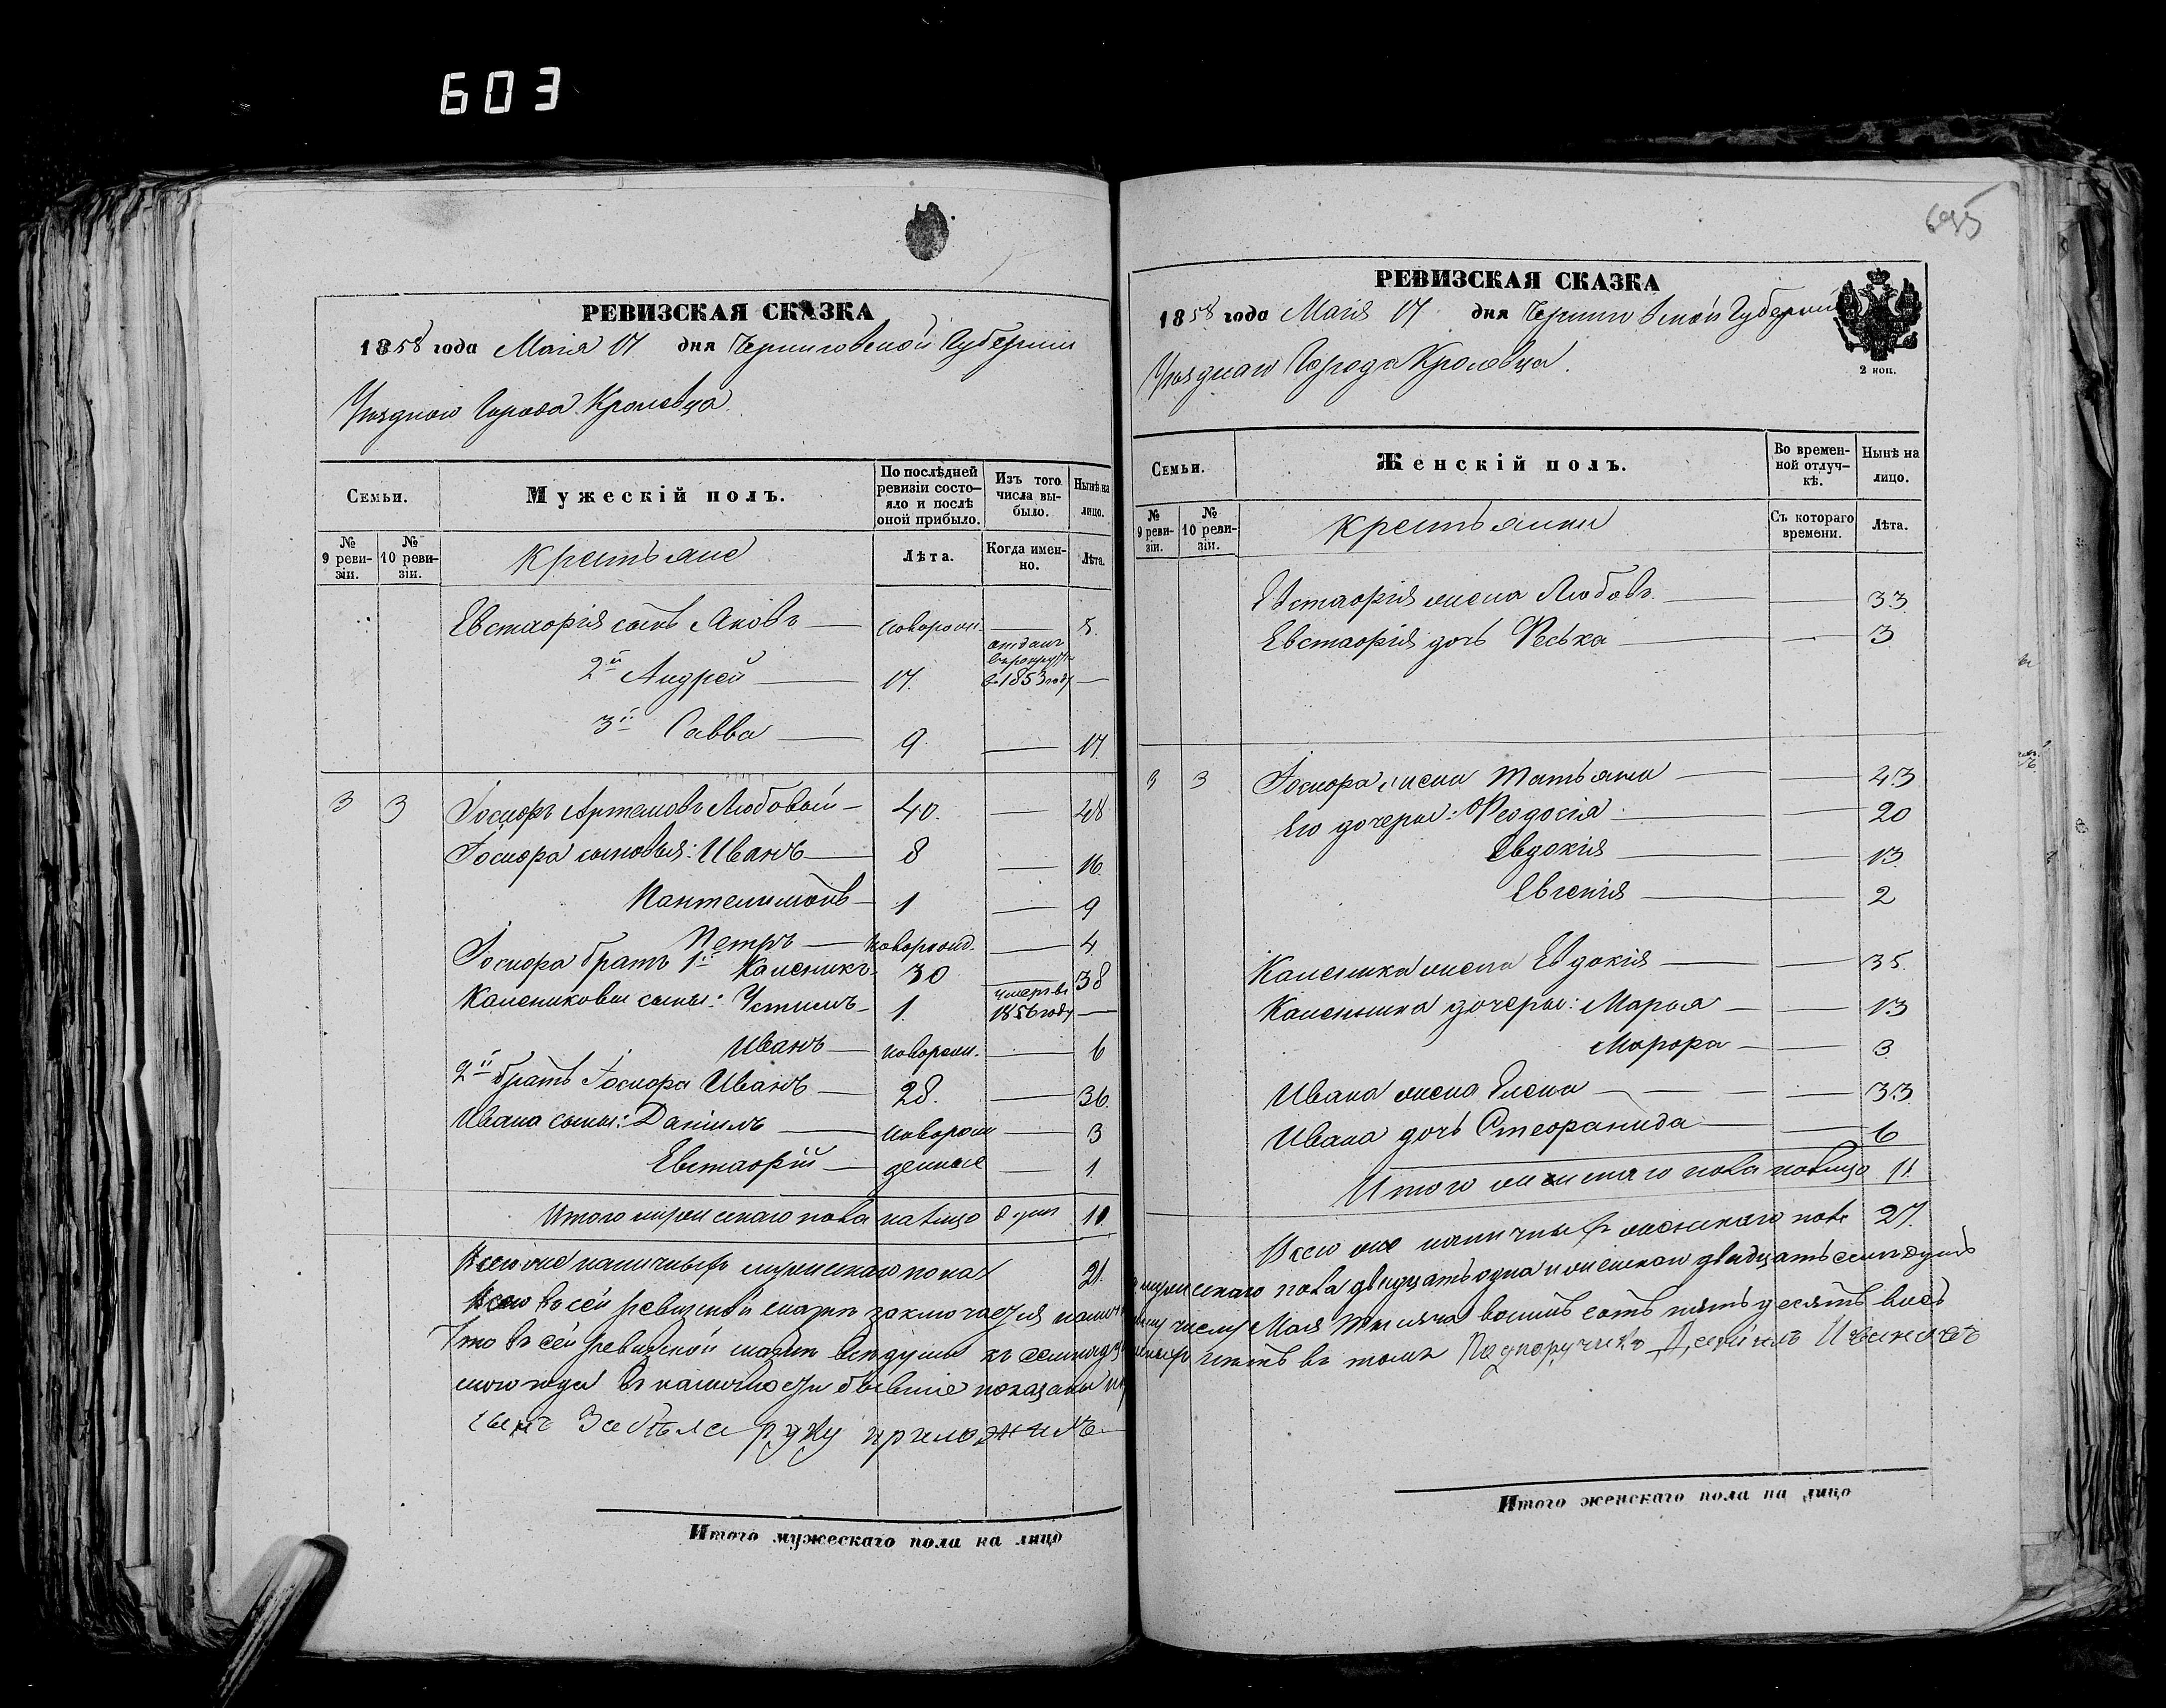 603
РЕВИЗСКАЯ СКАЗКА
1858 года Маія 17 дня Черниговской Губерніи
Уезднаго Города Кролевца
Семьи.
Мужескій полъ.
По послѣдней ревизіи состо-яло и послѣ оной прибыло.
Изъ того числа вы-было.
Нынѣ на лицо.
№ 9 реви-зіи.
№ 10 реви-зіи.
крестьяне
Лѣта.
Когда имен-но.
Лѣта.
Евстафія сынъ Яковъ — новорожд. — 8.
2й Андрей — 17. отданъ в рекруты в 1853 году —
3й Савва — 9. — 17.
3 3 Іосифъ Артемовъ Любовый — 40. — 48
Іосифа сыновья: Иванъ — 8 — 16.
Пантелимонъ — 1 — 9
Петръ — новорожд. — 4
Іосифа братъ 1й Каленикъ 30 — 38
Калениковы сыны: Устимъ — 1. умеръ въ 1856 году —
Иванъ — новорожд. — 6
2й братъ Іосифа Иванъ — 28. — 36.
Ивана сыны: Даніилъ — новорож — 3
Евстафій — денные — 1
Итого мужескаго пола на лицо душ 10.
Всего же наличныхъ мужескаго пола 21.
Всего в сей ревизской сказке заключается налич
Что въ сей ревизской сказке все души къ семнадц
сего года въ наличности бывшіе показаны и
сынъ Забѣла руку приложилъ
Итого мужескаго пола на лицо
695
РЕВИЗСКАЯ СКАЗКА
1858 года Маія 17 дня Черниговской Губерніи
2 коп.
Уезднаго Города Кролевца.
Семьи.
Женскій полъ.
Во времен-ной отлуч-кѣ.
Нынѣ на лицо.
№ 9 реви-зіи.
№ 10 реви-зіи.
крестьянки
Съ котораго времени.
Лѣта.
Евстафія жена Любовь — — 33.
Евстафія дочь Феська — — 3
3 3 Іосифа жена Татьяна — — 43
Его дочеры: Феодосія — — 20
Евдокія — — 13.
Евгенія — — 2
Каленика жена Евдокія — — 35.
Каленика дочеры: Марья — — 13
— — 3
Ивана жена Елена — — 33.
Ивана дочь Стефанида — — 6
Итого женскаго пола налицо 11.
Всего же наличныхъ женскаго пола 27.
мужескаго пола двадцать одна и женскаго двадцать семь душъ
числу Мая тысяча восемь сотъ пятьдесятъ
нетъ въ томъ Подпоручикъ Ивановъ
Итого женскаго пола на лицо